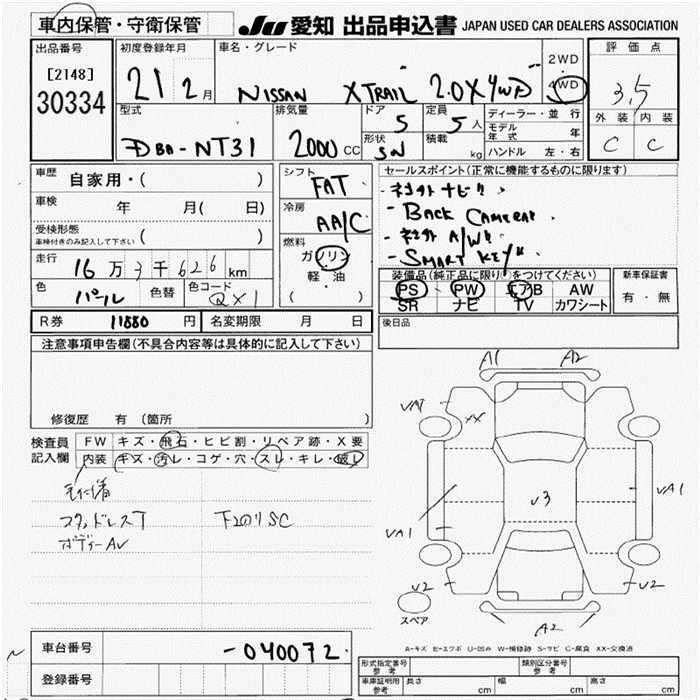 車内保管・守衛保管
JU 愛知 出品申込書 JAPAN USED CAR DEALERS ASSOCIATION
出品番号
[2148]
30334
初度登録年月
21 2月
車名・グレード
NISSAN XTRAIL 2.0X4WD
2WD
4WD
評価点
3,5
外装 内装
C C
型式
DBA-NT31
排気量
2000CC
ドア
5
定員
5人
形状
SW
積載
kg
ディーラー・並行
モデル年式 年
ハンドル 左・右
車歴
自家用・( )
車検
年 月( 日)
受検形態
車検付きのみ記入して下さい
( )
走行
16万3千626km
色
パール
色替
色コード
QX1
シフト
FAT
冷房
AA/C
燃料
ガソリン
軽・油
( )
セールスポイント(正常に機能するものに限ります)
・社外ナビ
・BACK CAMERA
・社外A/W
・SMART KEY
装備品(純正品に限り○をつけてください)
PS PW エアB AW
SR ナビ TV カワシート
新車保証書
有・無
R券 11880円
名変期限 月 日
後日品
注意事項申告欄(不具合内容等は具体的に記入して下さい)
修復歴 有 (箇所 )
検査員
記入欄
FW キズ・飛石・ヒビ割・リペア跡・X要
内装 キズ・汚レ・コゲ・穴・スレ・キレ・破レ
スタッドレスT
下回りSC
ボディーAV
A1 A2
XX
V3
VA1
VA1
V2
V2
スペア
A2
A-キズ E-エクボ U-凹み W-補修跡 S-サビ C-腐食 XX-交換済
車台番号
-040072
登録番号
形式指定番号
参考
類別区分番号
参考
車庫証明用
参考
長さ cm
幅 cm
高さ cm